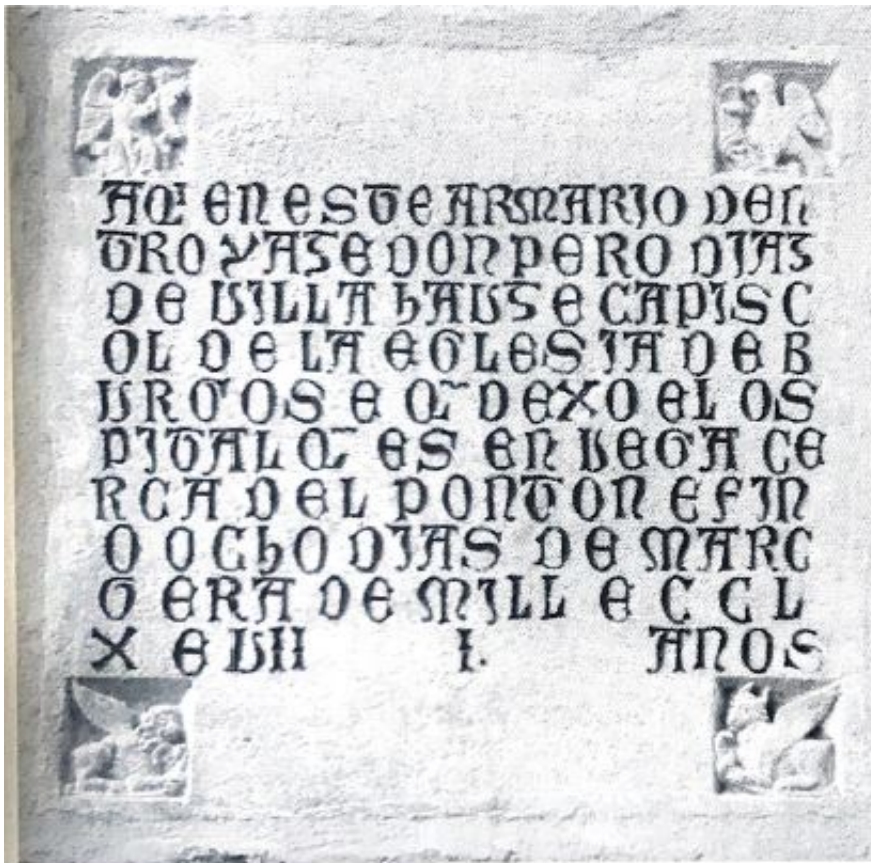 AQI EN ESTE ARMARIO DEN
TRO YAZE DON PERO DIAZ
DE VILLAHAUZE CAPISC
OL DE LA EGLESIA DE B
URGOS E Q~ DEXO EL OS
PITAL Q~ ES EN VEGA CE
RCA DEL PONTON E FIN
O OCHO DIAS DE MARC
O ERA DE MILL E C C L
X E VII I. ANOS